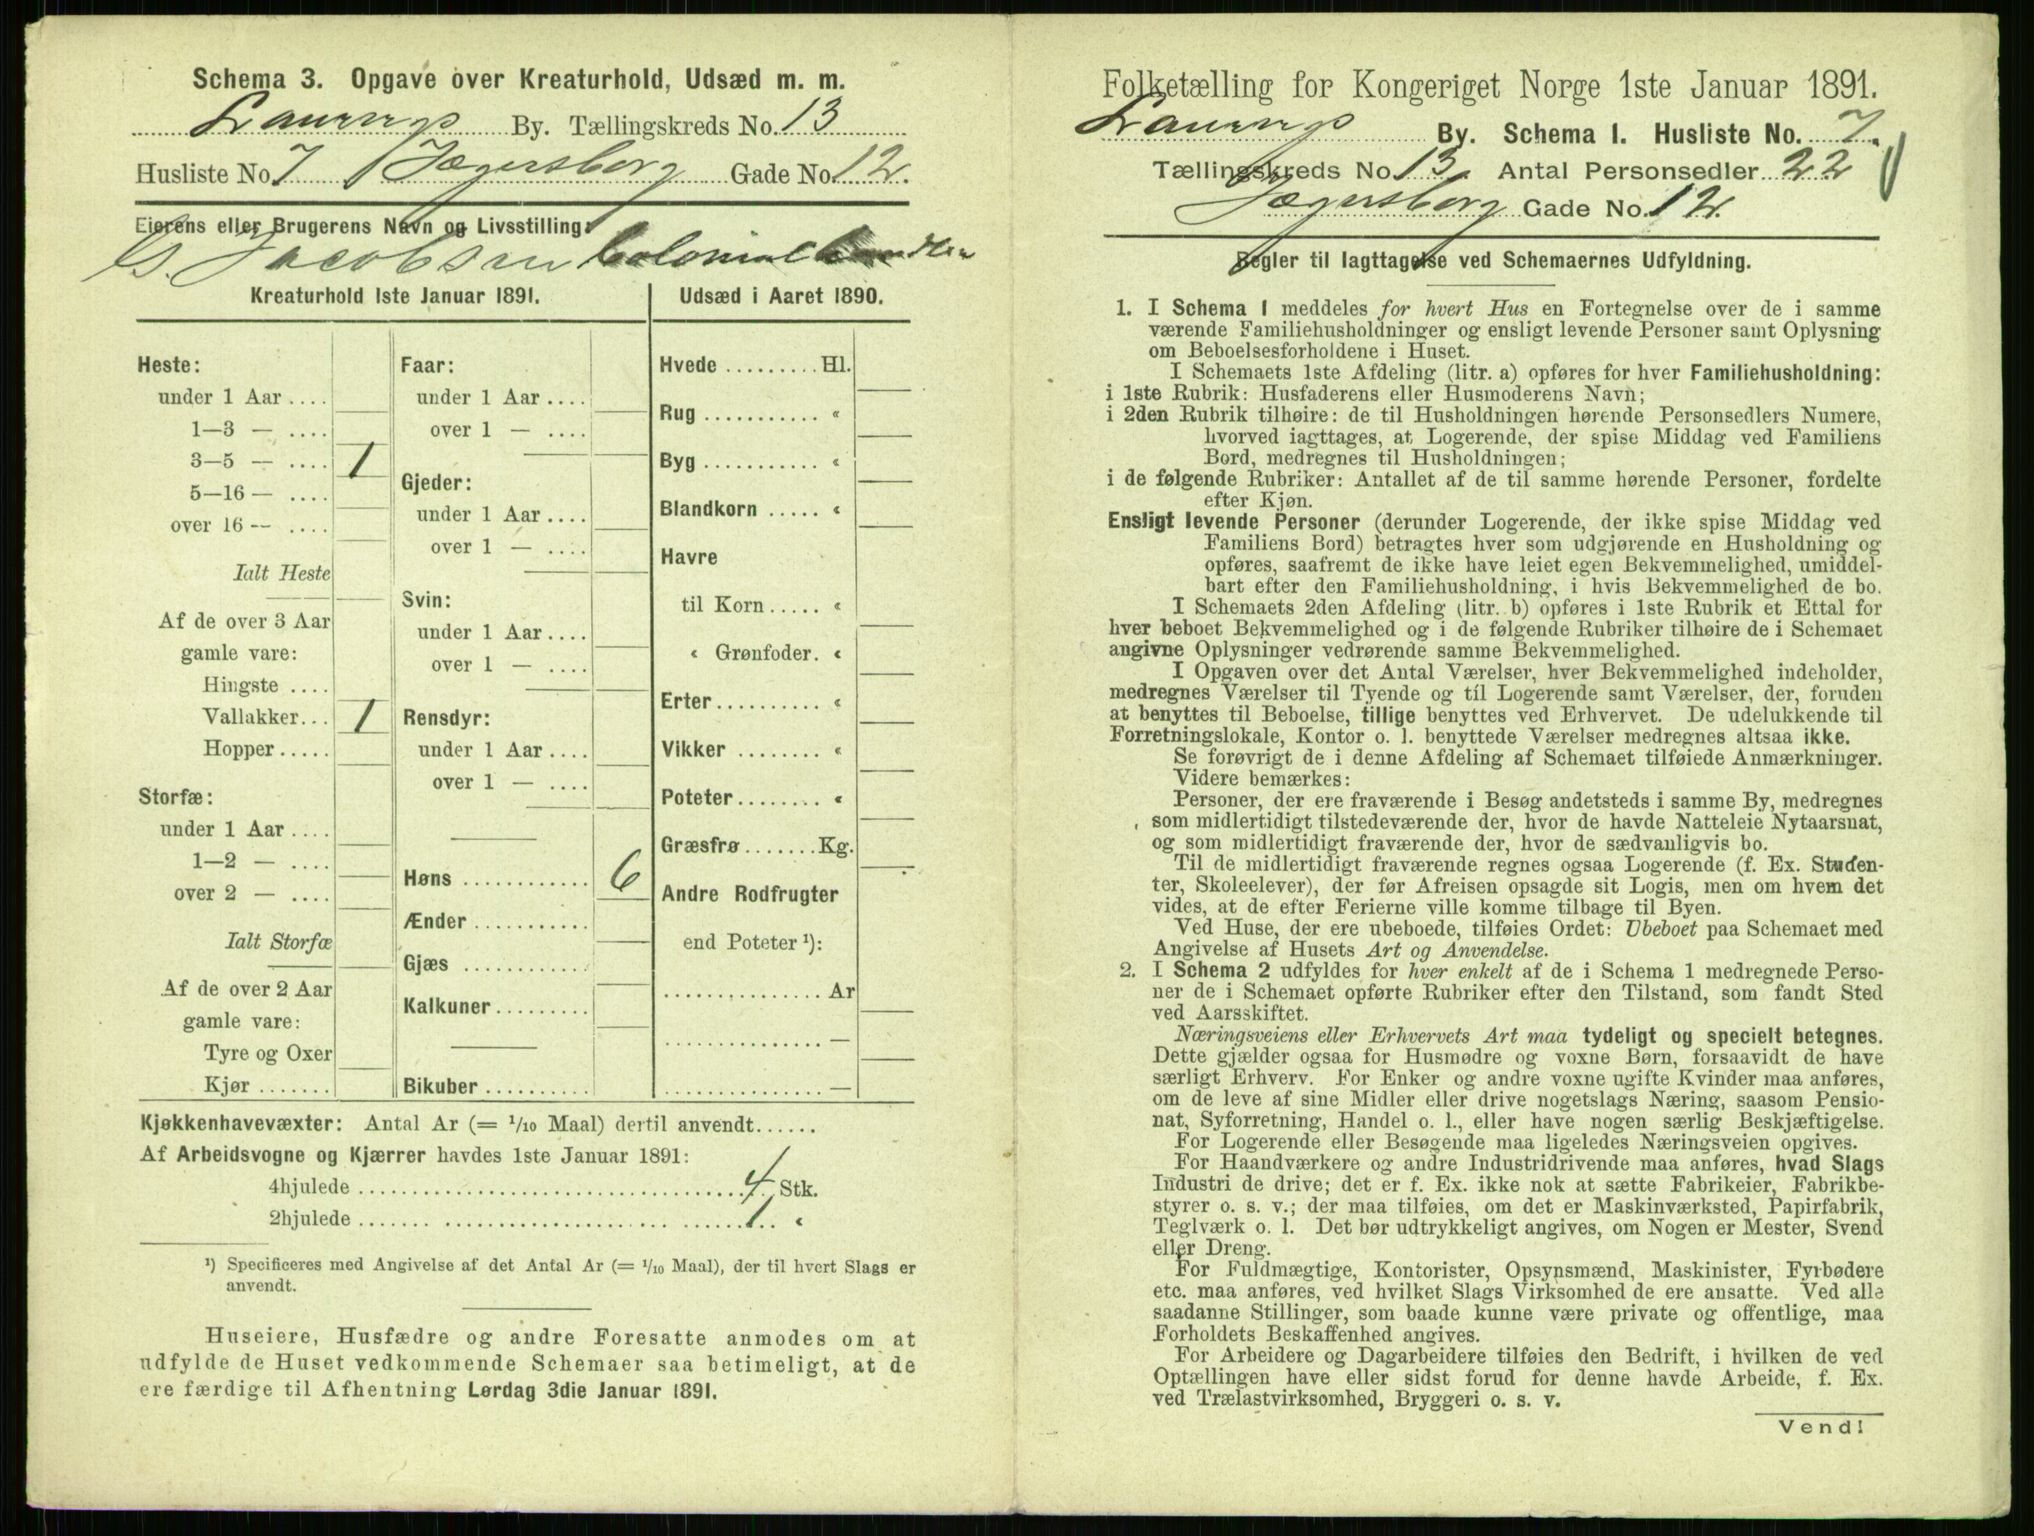 Schema 3. Opgave over Kreaturhold, Udsæd m. m.
Laurvigs By. Tællingskreds No. 13
Husliste No 7 Jægersborg Gade No. 12.
Eierens eller Brugerens Navn og Livsstilling:
G. Jacobsen Colonialhandler
Kreaturhold 1ste Januar 1891.
Heste:
under 1 Aar ....
1—3 — ....
3—5 — .... 1
5—16 — ....
over 16 -- ....
Ialt Heste
Af de over 3 Aar
gamle vare:
Hingste ....
Vallakker... 1
Hopper .....
Storfæ:
under 1 Aar ....
1—2 — ....
over 2 — ....
Ialt Storfæ
Af de over 2 Aar
gamle vare:
Tyre og Oxer
Kjør .......
Faar:
under 1 Aar ....
over 1 — ....
Gjeder:
under 1 Aar ....
over 1 — ....
Svin:
under 1 Aar ....
over 1 — ....
Rensdyr:
under 1 Aar ....
over 1 — ....
Høns ............ 6
Ænder ...........
Gjæs ............
Kalkuner .........
Bikuber ..........
Udsæd i Aaret 1890.
Hvede ......... Hl.
Rug ........... «
Byg ........... «
Blandkorn ..... «
Havre
til Korn ..... «
« Grønfoder. «
Erter .......... «
Vikker ........ «
Poteter ........ «
Græsfrø ....... Kg.
Andre Rodfrugter
end Poteter ¹):
............... Ar
............... —
............... —
Kjøkkenhavevæxter: Antal Ar (= 1/10 Maal) dertil anvendt......
Af Arbeidsvogne og Kjærrer havdes 1ste Januar 1891:
4hjulede .................................... 4 Stk.
2hjulede .................................... 1 «
¹) Specificeres med Angivelse af det Antal Ar (= 1/10 Maal), der til hvert Slags er
anvendt.
Huseiere, Husfædre og andre Foresatte anmodes om at
udfylde de Huset vedkommende Schemaer saa betimeligt, at de
ere færdige til Afhentning Lørdag 3die Januar 1891.
Folketælling for Kongeriget Norge 1ste Januar 1891.
Laurvigs By. Schema 1. Husliste No. 7.
Tællingskreds No 13. Antal Personsedler 22
Jægersborg Gade No. 12.
Regler til Iagttagelse ved Schemaernes Udfyldning.
1. I Schema 1 meddeles for hvert Hus en Fortegnelse over de i samme
værende Familiehusholdninger og ensligt levende Personer samt Oplysning
om Beboelsesforholdene i Huset.
I Schemaets 1ste Afdeling (litr. a) opføres for hver Familiehusholdning:
i 1ste Rubrik: Husfaderens eller Husmoderens Navn;
i 2den Rubrik tilhøire: de til Husholdningen hørende Personsedlers Numere,
hvorved iagttages, at Logerende, der spise Middag ved Familiens
Bord, medregnes til Husholdningen;
i de følgende Rubriker: Antallet af de til samme hørende Personer, fordelte
efter Kjøn.
Ensligt levende Personer (derunder Logerende, der ikke spise Middag ved
Familiens Bord) betragtes hver som udgjørende en Husholdning og
opføres, saafremt de ikke have leiet egen Bekvemmelighed, umiddel-
bart efter den Familiehusholdning, i hvis Bekvemmelighed de bo.
I Schemaets 2den Afdeling (litr. b) opføres i 1ste Rubrik et Ettal for
hver beboet Bekvemmelighed og i de følgende Rubriker tilhøire de i Schemaet
angivne Oplysninger vedrørende samme Bekvemmelighed.
I Opgaven over det Antal Værelser, hver Bekvemmelighed indeholder,
medregnes Værelser til Tyende og til Logerende samt Værelser, der, foruden
at benyttes til Beboelse, tillige benyttes ved Erhvervet. De udelukkende til
Forretningslokale, Kontor o. l. benyttede Værelser medregnes altsaa ikke.
Se forøvrigt de i denne Afdeling af Schemaet tilføiede Anmærkninger.
Videre bemærkes:
Personer, der ere fraværende i Besøg andetsteds i samme By, medregnes
som midlertidigt tilstedeværende der, hvor de havde Natteleie Nytaarsnat,
og som midlertidigt fraværende der, hvor de sædvanligvis bo.
Til de midlertidigt fraværende regnes ogsaa Logerende (f. Ex. Studen-
ter, Skoleelever), der før Afreisen opsagde sit Logis, men om hvem det
vides, at de efter Ferierne ville komme tilbage til Byen.
Ved Huse, der ere ubeboede, tilføies Ordet: Ubeboet paa Schemaet med
Angivelse af Husets Art og Anvendelse.
2. I Schema 2 udfyldes for hver enkelt af de i Schema 1 medregnede Perso-
ner de i Schemaet opførte Rubriker efter den Tilstand, som fandt Sted
ved Aarsskiftet.
Næringsveiens eller Erhvervets Art maa tydeligt og specielt betegnes.
Dette gjælder ogsaa for Husmødre og voxne Børn, forsaavidt de have
særligt Erhverv. For Enker og andre voxne ugifte Kvinder maa anføres,
om de leve af sine Midler eller drive nogetslags Næring, saasom Pensio-
nat, Syforretning, Handel o. l., eller have nogen særlig Beskjæftigelse.
For Logerende eller Besøgende maa ligeledes Næringsveien opgives.
For Haandværkere og andre Industridrivende maa anføres, hvad Slags
Industri de drive; det er f. Ex. ikke nok at sætte Fabrikeier, Fabrikbe-
styrer o. s. v.; der maa tilføies, om det er Maskinværksted, Papirfabrik,
Teglværk o. l. Det bør udtrykkeligt angives, om Nogen er Mester, Svend
eller Dreng.
For Fuldmægtige, Kontorister, Opsynsmænd, Maskinister, Fyrbødere
etc. maa anføres, ved hvilket Slags Virksomhed de ere ansatte. Ved alle
saadanne Stillinger, som baade kunne være private og offentlige, maa
Forholdets Beskaffenhed angives.
For Arbeidere og Dagarbeidere tilføies den Bedrift, i hvilken de ved
Optællingen have eller sidst forud for denne havde Arbeide, f. Ex.
ved Trælastvirksomhed, Bryggeri o. s. v.
Vend!